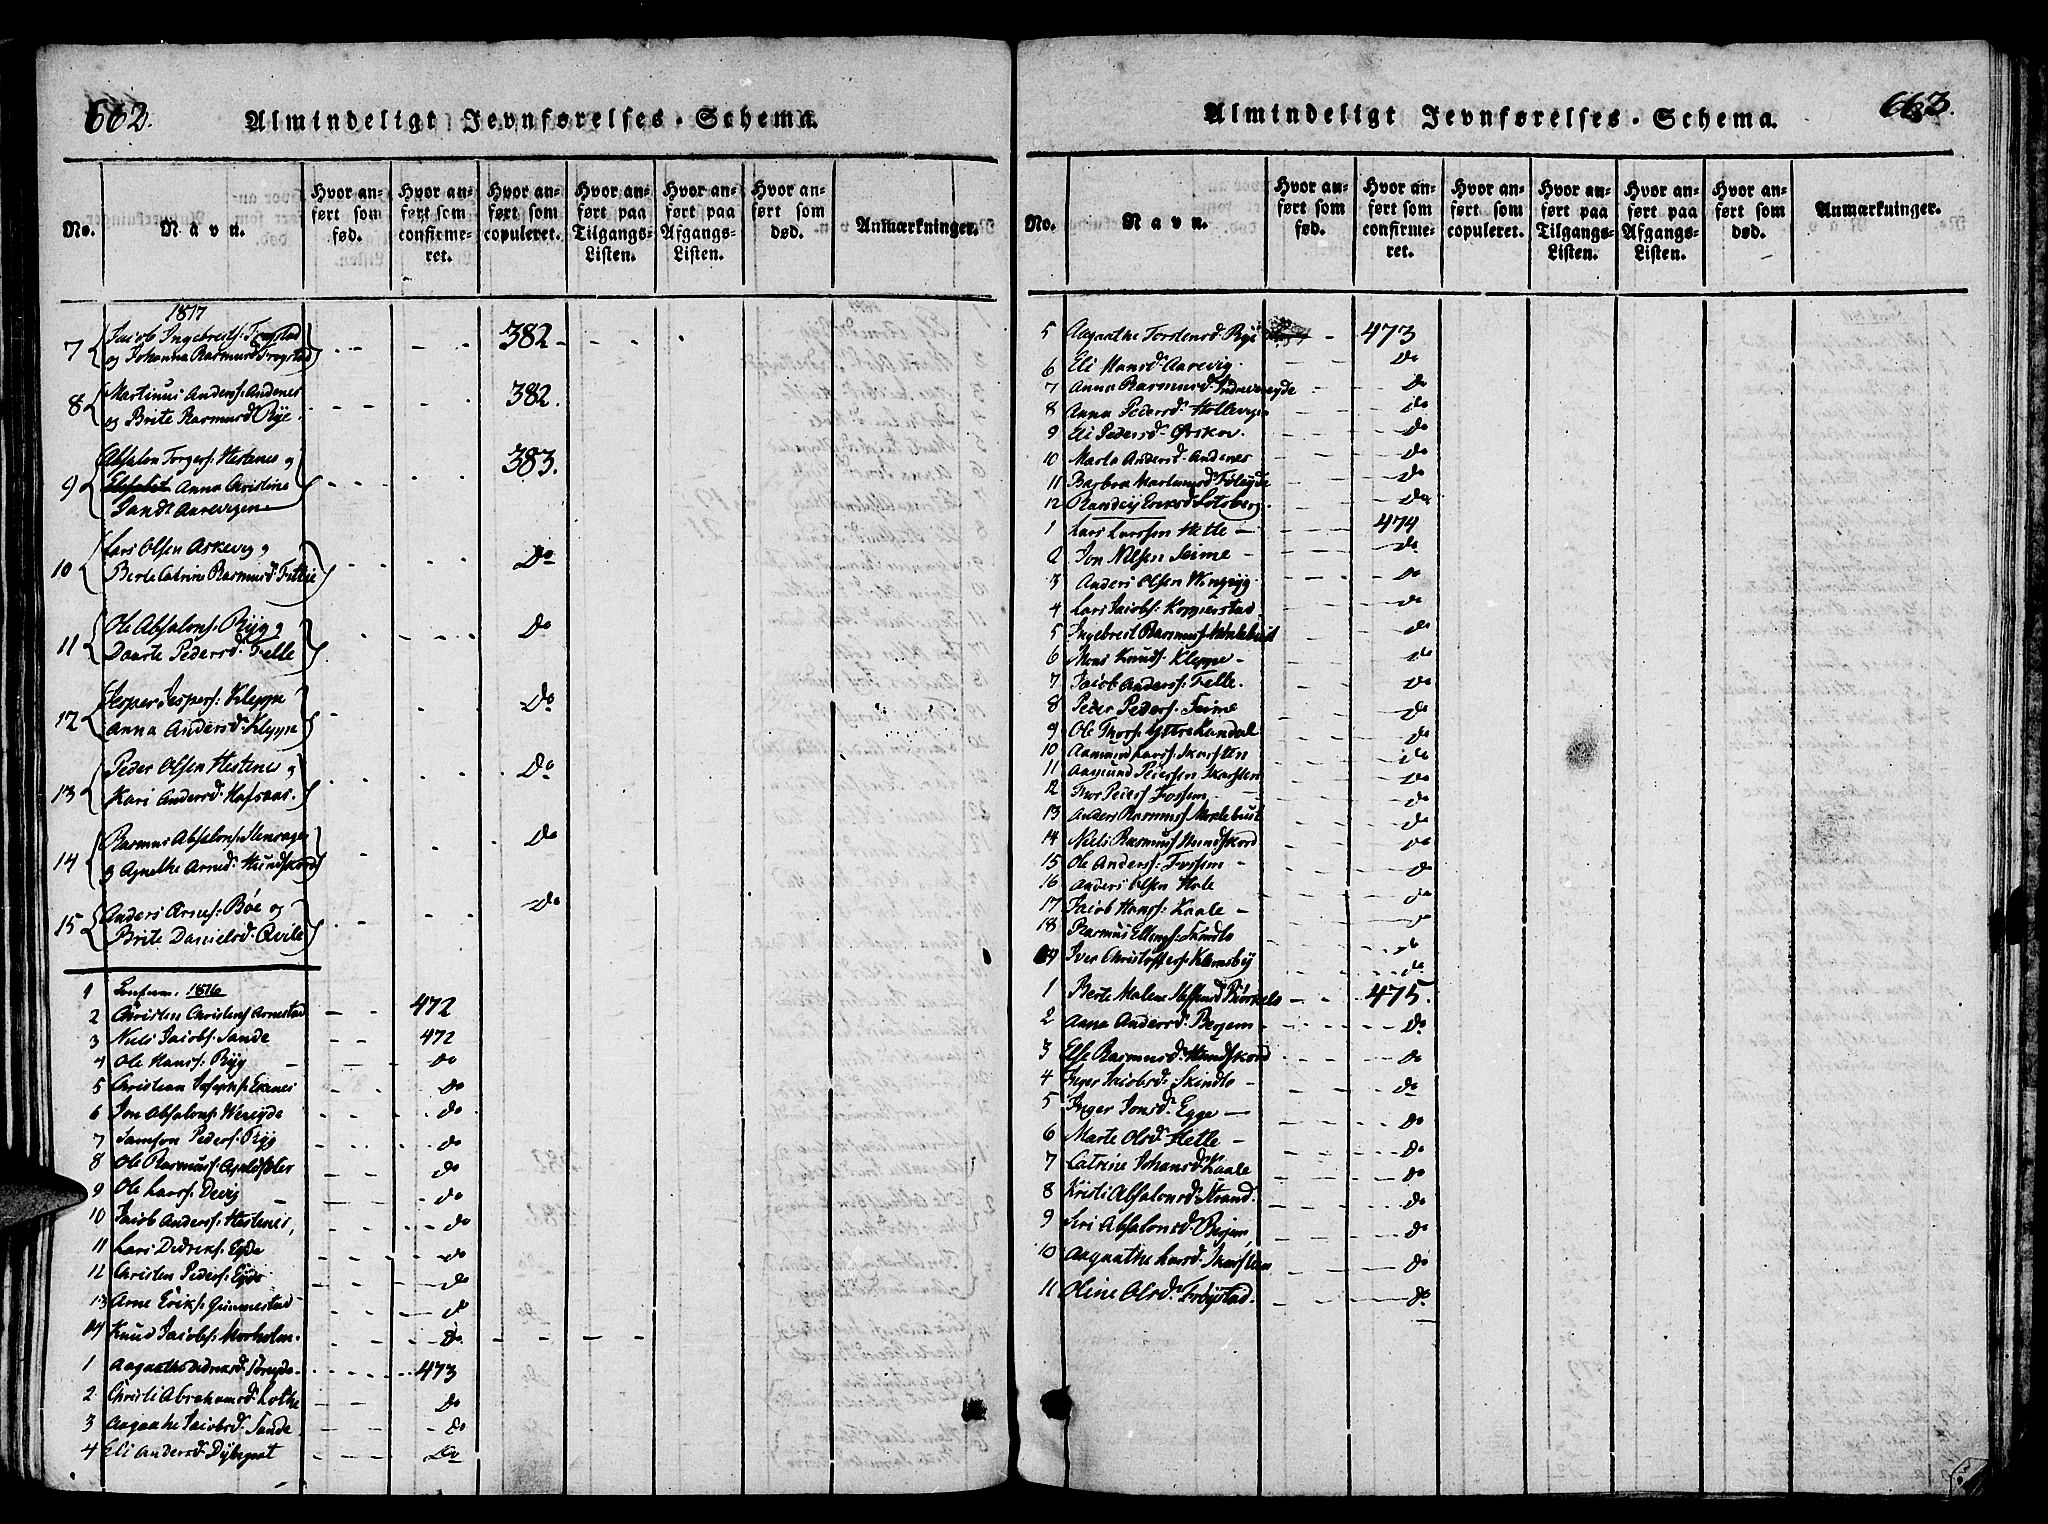 662.
Almindeligt Jevnførelses-Schema.
No.
Navn.
Hvor anført som fød.
Hvor anført som confirmeret.
Hvor anført som copuleret.
Hvor anført paa Tilgangs-Listen.
Hvor anført paa Afgangs-Listen.
Hvor anført som død.
Anmærkninger.
1817
7 Jacob Ingebreitss: Frøystad
og Johanna Rasmusd Frøystad 382
8 Martinus Anderss: Andenes
og Brite Rasmusd Rye. 382.
9 Absalon Torgerss: Hestenes og
Anna Christine
Sand Aarevigen 383.
10 Lars Olsen Askevig og
Berte Catrine Rasmusd: Fittie Do
11 Ole Absalons: Ryg og
Daarte Pedersd: Felle Do
12 Jesper Jespers: Kleppe
Anna Andersd: Kleppe Do
13 Peder Olsen Hestenes og
Kari Andersd: Hafsaas. Do
14 Rasmus Absalons: Stensager
og Agnethe Arnesd: Hundskord Do
15 Anders Arnes: Bøe og
Brite Danielsd: Qvile Do
1 Confirm. 1816
2 Christen Christens Arnestad 472
3 Niels Jacobs: Sande 472
4 Ole Hanss: Ryg Do
5 Christian Josephs: Exenes Do
6 Jon Absalons: Wereyde Do
7 Samson Peders: Ryg Do
8 Ole Rasmuss: Apaldsdler Do
9 Ole Larss: Devig Do
10 Jacob Anderss: Hestenes, Do
11 Lars Didriks: Eyde Do
12 Christen Peders: Eyde Do
13 Arne Eriks: Gimmestad Do
14 Knud Jacobs: Morholm. Do.
1 Aagaathe 473
2 Christi Abrahamsd: Lothe Do
3 Aagaathe Jacobsd: Sande Do
4 Eli Andersd: Do
663.
Almindeligt Jevnførelses-Schema.
No.
Navn.
Hvor anført som fød.
Hvor anført som confirmeret.
Hvor anført som copuleret.
Hvor anført paa Tilgangs-Listen.
Hvor anført paa Afgangs-Listen.
Hvor anført som død.
Anmærkninger.
5 Aagaathe Torstensd: Rye 473
6 Eli Hansd: Aarevig Do
7 Anna Rasmusd: Indrevereyde Do
8 Anna Pedersd: Hollevigen Do
9 Eli Pedersd: Ørskov. Do
10 Marta Andersd: Andenes Do
11 Barbra Martinusd Do
12 Randey Eriksd: Lotsberg. Do
1 Lars Larssen Hetle 474
2 Jon Nilsen Seime Do
3 Anders Olsen Wingryg Do
4 Lars Jacobs: Kopperstad. Do
5 Ingebreit Rasmuss: Moldebust Do
6 Mons Knuds: Kleppe Do
7 Jacob Anderss: Felle. Do
8 Peder Peders: Seime Do
9 Ole Thors: Ytrehandal Do
10 Aamund Larss: Skarsten Do
11 Aamund Pedersen Skarsten Do
12 Thor Peders: Fossem Do
13 Anders Rasmuss: Moldebust Do
14 Niels Rasmuss: Hundskord Do
15 Ole Anderss: Fossem Do
16 Anders Olsen Hole Do
17 Jacob Hanss: Kaale Do
18 Rasmus Ellings: Skindlo Do
19 Iver Christoffers: Klemsby Do
1 Berte Malene Steffensd Biørkelo 475.
2 Anna Andersd: Berjem Do
3 Else Rasmusd: Hundskord Do
4 Inger Jacobsd: Skindlo Do
5 Inger Jonsd: Egge Do
6 Marte Olsd: Hetle Do
7 Catrine Johansd: Kaale Do
8 Kristi Absalonsd: Strand Do
9 Siri Absalonsd: Berjem Do
10 Aagaathe Larsd: Skarsten Do
11 Oline Olsd: Frøystad. Do